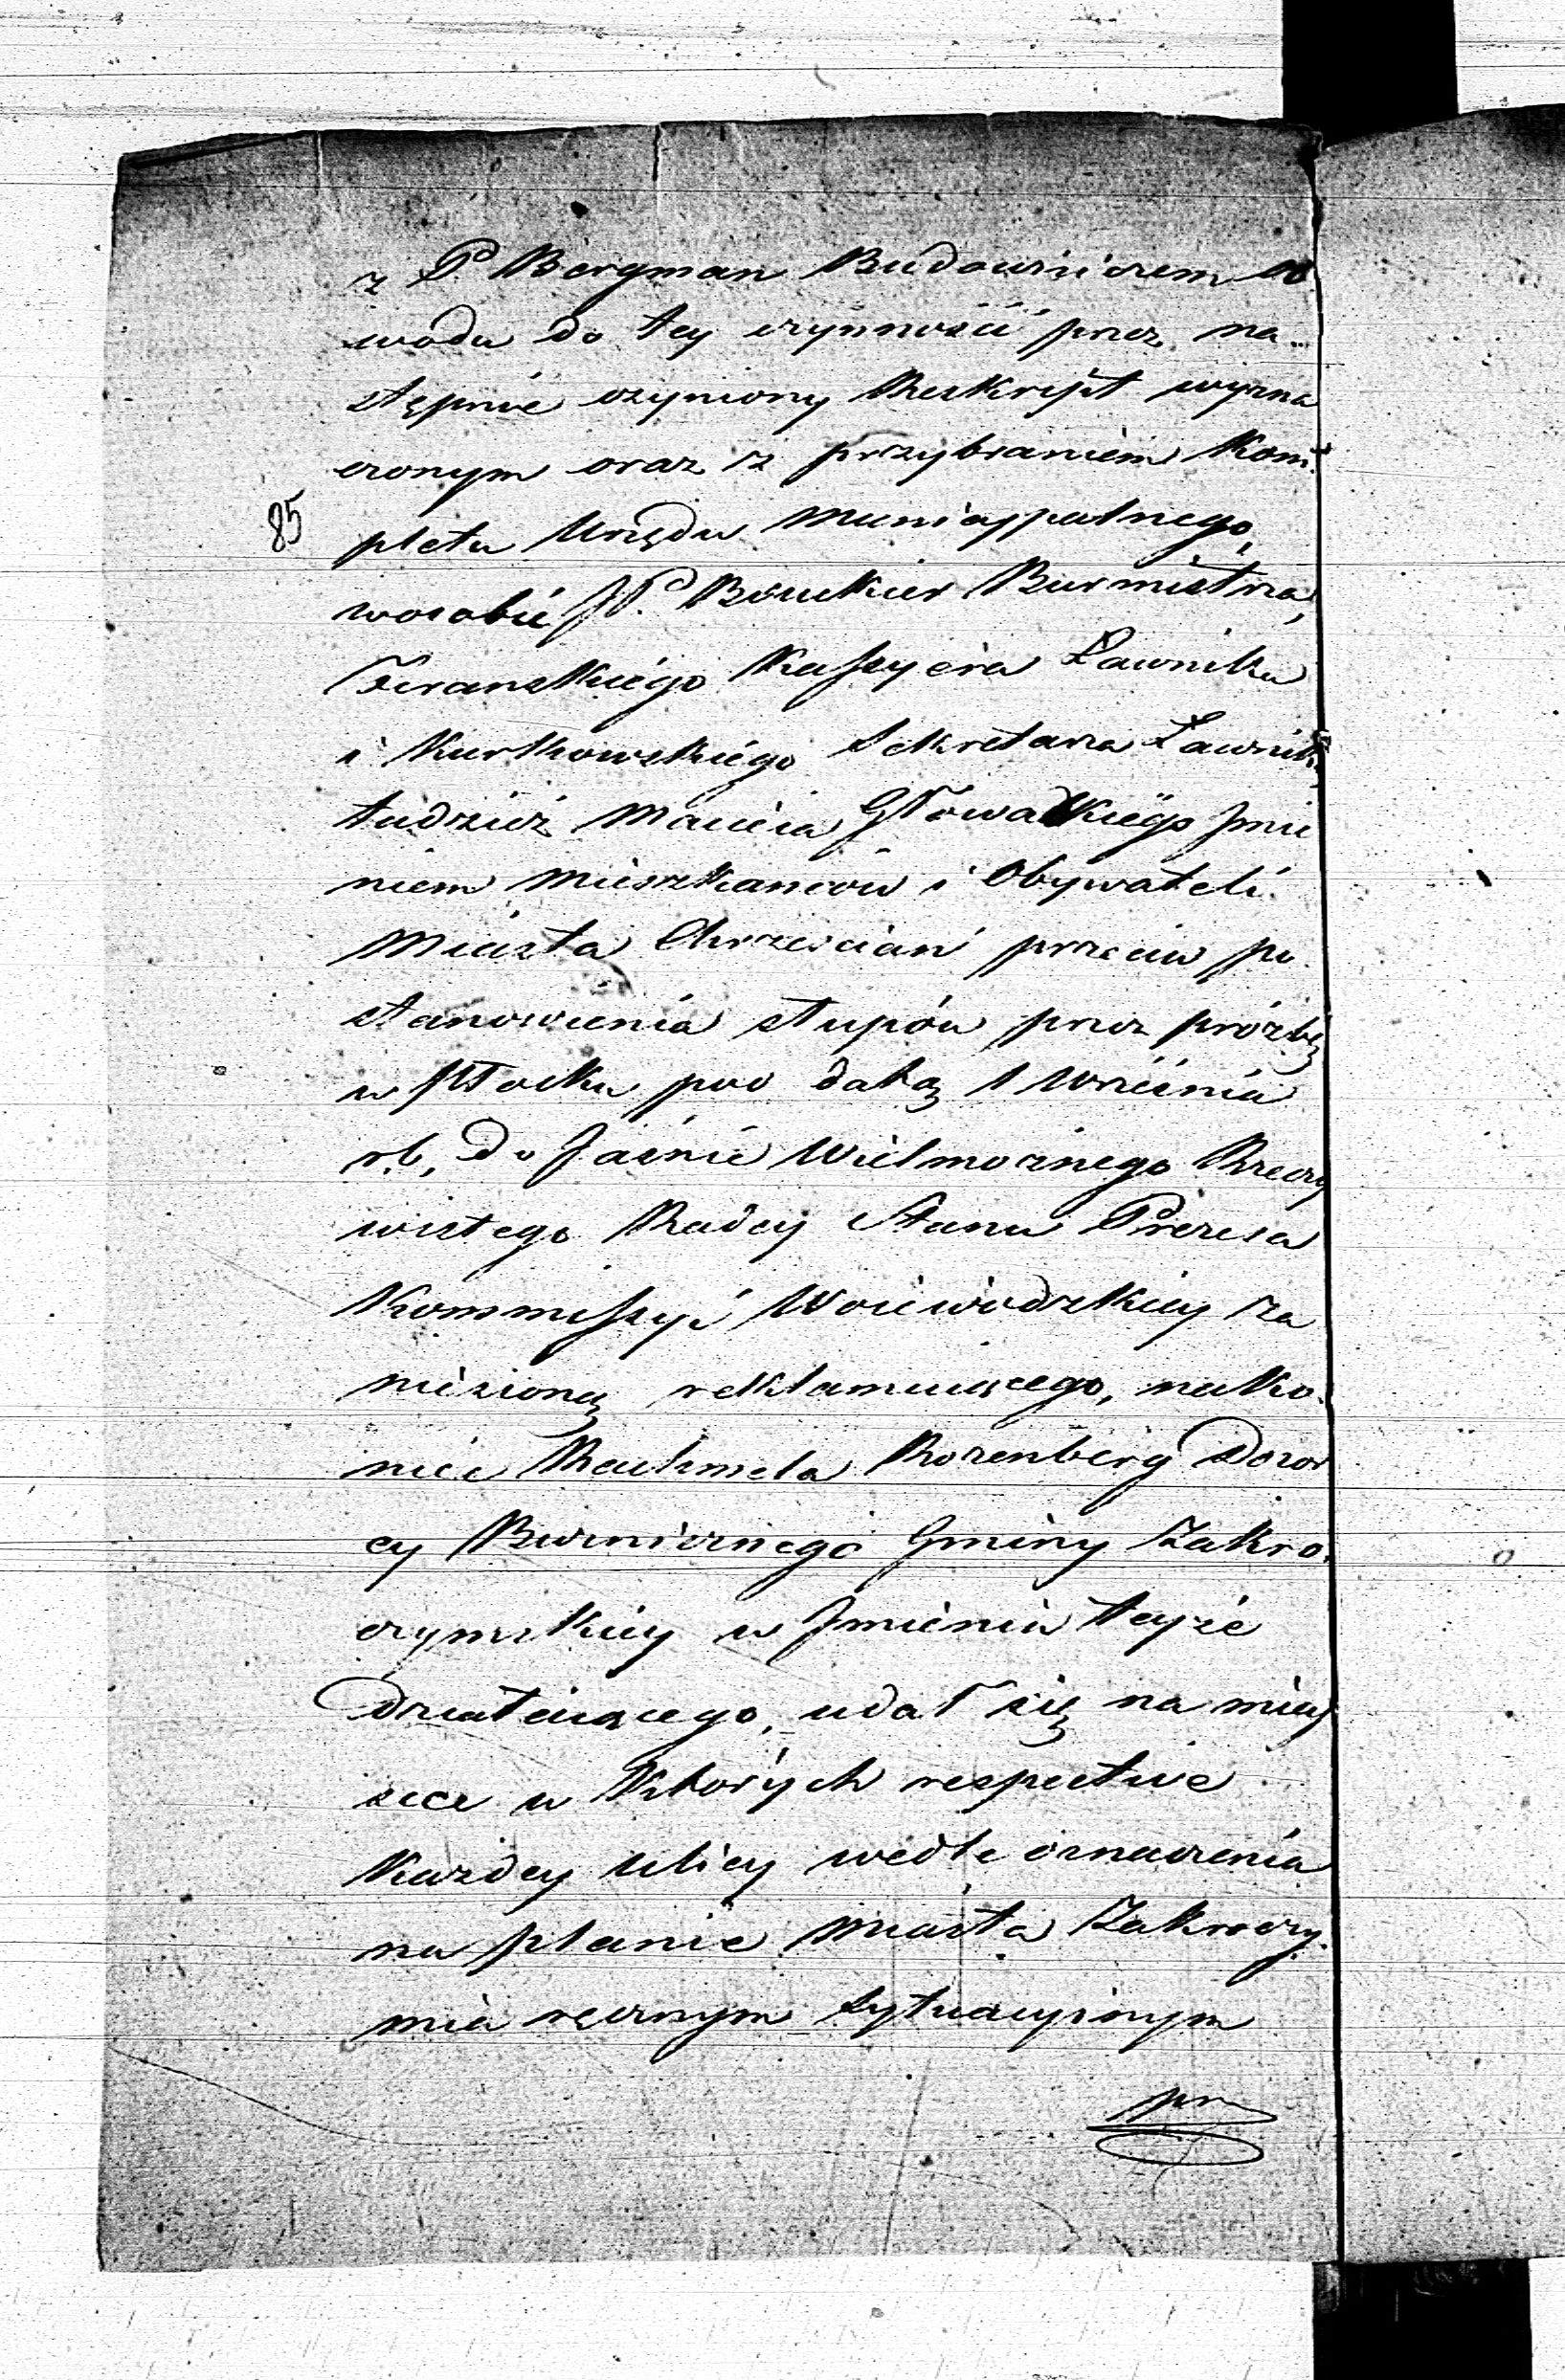 z P Bergman Budowniczem Ob
wodu do tey czynności przez na-
stępnie czyniony Reskript wyzna
czonym oraz z przybraniem Kom-
85
pletu Urzędu Municypalnego,
wosobie JP. Bouckier Burmistrza,
Kassyera Ławnika
i Kurkowskiego Sekretarza Ławnika
tudzież Macieia Głowackiego Jmie
niem Mieszkańców i Obywateli
Miasta Chrzescian przeciw po
stanowienia słupów przez prózbę
w Płocku pod datą 1 Września
r.b. do Jaśnie Wielmożnego Rzeczy
wistego Radcy Stanu Prezesa
Kommissyi Woiewódzkiey za
niesioną reklamuiącego, nako-
niec Rachmela Rozenberg Dozor
cy Bużniczego Gminy Zakro-
czymskiey w Jmieniu teyże
Działaiącego, udał się na miey
sce w których respective
Każdey Ulicy wedle oznaczenia
na planie Miasta Zakroczy-
mia ręcznym Sytuacyinym
prz